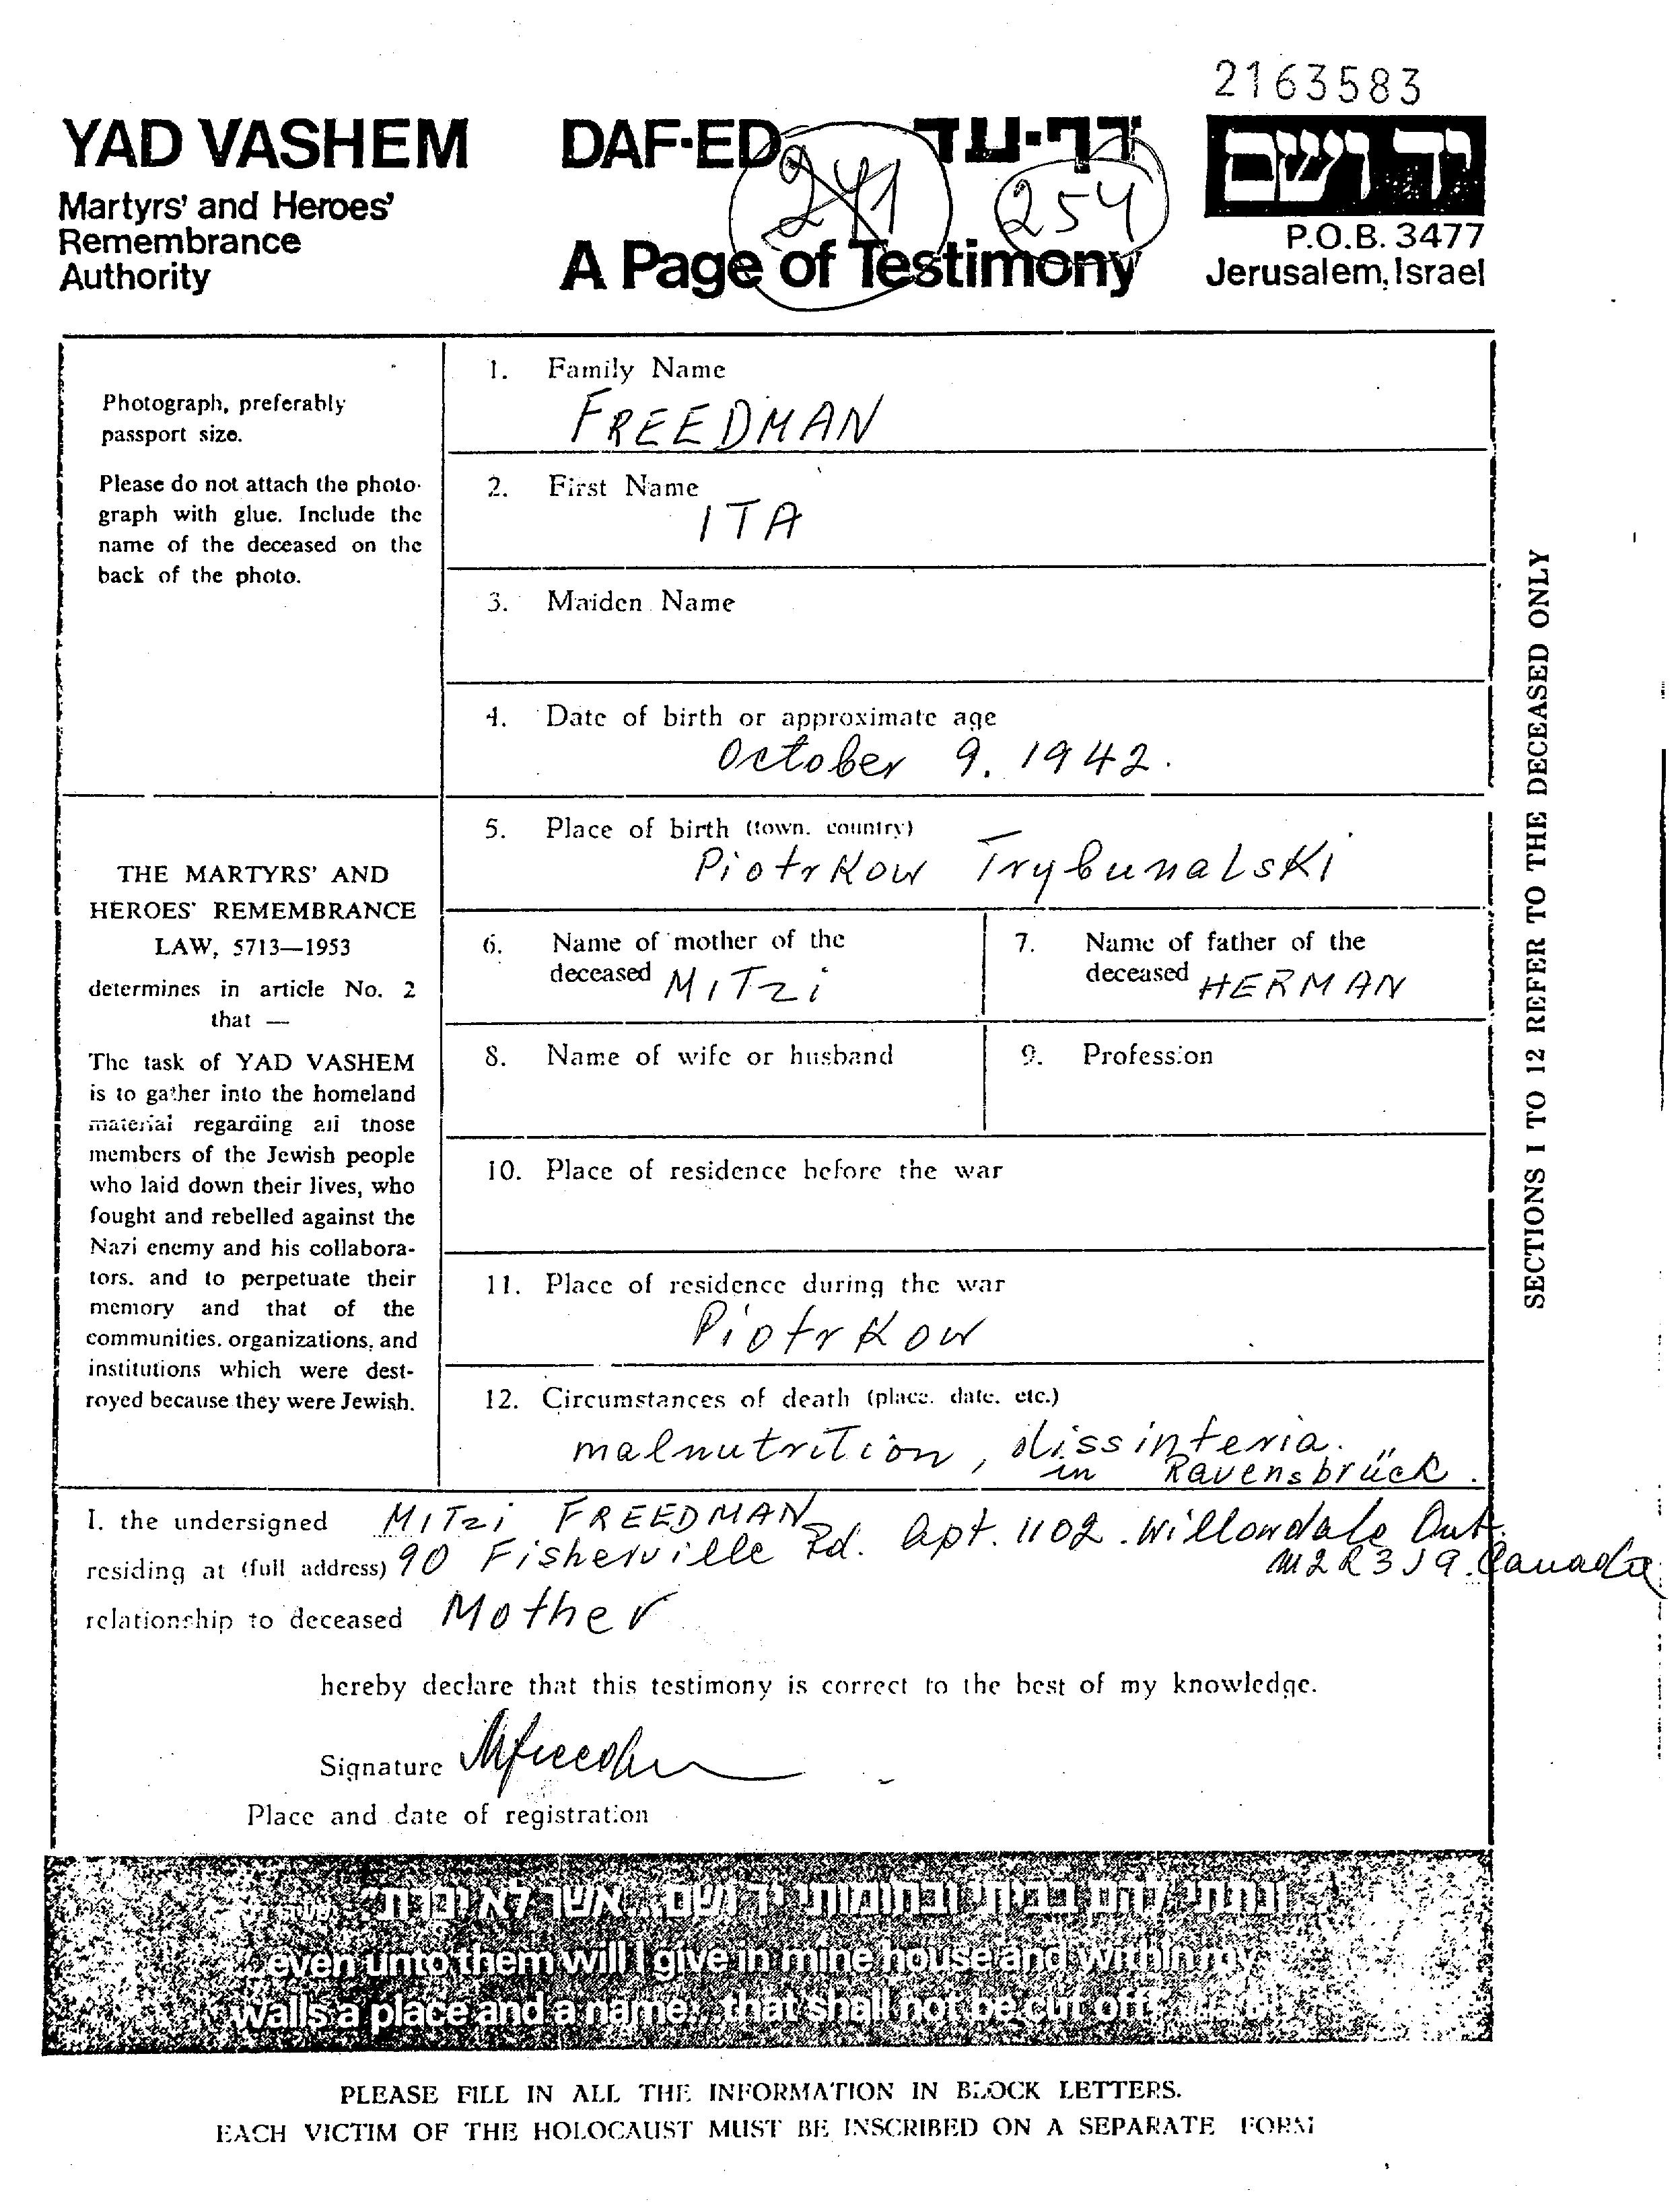 2163583
YAD VASHEM
Martyrs' and Heroes'
Remembrance
Authority
DAF-ED דף-עד
241
254
A Page of Testimony
יד ושם
P.O.B. 3477
Jerusalem, Israel
Photograph, preferably
passport size.
Please do not attach the photo-
graph with glue. Include the
name of the deceased on the
back of the photo.
THE MARTYRS' AND
HEROES' REMEMBRANCE
LAW, 5713—1953
determines in article No. 2
that —
The task of YAD VASHEM
is to gather into the homeland
material regarding all those
members of the Jewish people
who laid down their lives, who
fought and rebelled against the
Nazi enemy and his collabora-
tors. and to perpetuate their
memory and that of the
communities, organizations, and
institutions which were dest-
royed because they were Jewish.
1. Family Name
FREEDMAN
2. First Name
ITA
3. Maiden Name
4. Date of birth or approximate age
October 9. 1942.
5. Place of birth (town. country)
Piotrkow Trybunalski
6. Name of mother of the
deceased MITzi
7. Name of father of the
deceased HERMAN
8. Name of wife or husband
9. Profession
10. Place of residence before the war
11. Place of residence during the war
Piotrkow
12. Circumstances of death (place. date. etc.)
malnutrition, dissinteria.
in Ravensbrück.
SECTIONS 1 TO 12 REFER TO THE DECEASED ONLY
I. the undersigned MITzi FREEDMAN
residing at (full address) 90 Fisherville Rd. Apt. 1102. Willowdale Ont.
M2R3J9. Canada
relationship to deceased Mother
hereby declare that this testimony is correct to the best of my knowledge.
Signature MFreedman
Place and date of registration
"ונתתי להם בביתי ובחומותי יד ושם...אשר לא יכרת"
"...even unto them will I give in mine house and within my
walls a place and a name...that shall not be cut off"
PLEASE FILL IN ALL THE INFORMATION IN BLOCK LETTERS.
EACH VICTIM OF THE HOLOCAUST MUST BE INSCRIBED ON A SEPARATE FORM